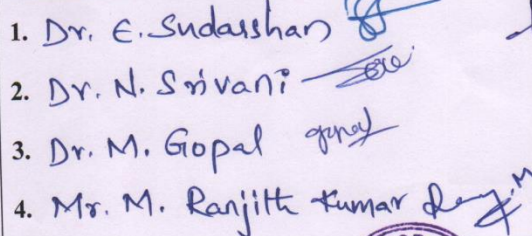 1. Dr. E. Sudarshan
2. Dr. N. Srivani
3. Dr. M. Gopal
4. Mr. M. Ranjith Kumar